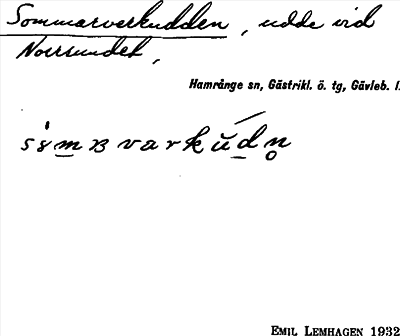 Sommarverkudden, udde vid
Norrsundet,
Hamrånge sn, Gästrikl. ö. tg, Gävleb. l.
EMIL LEMHAGEN 1932